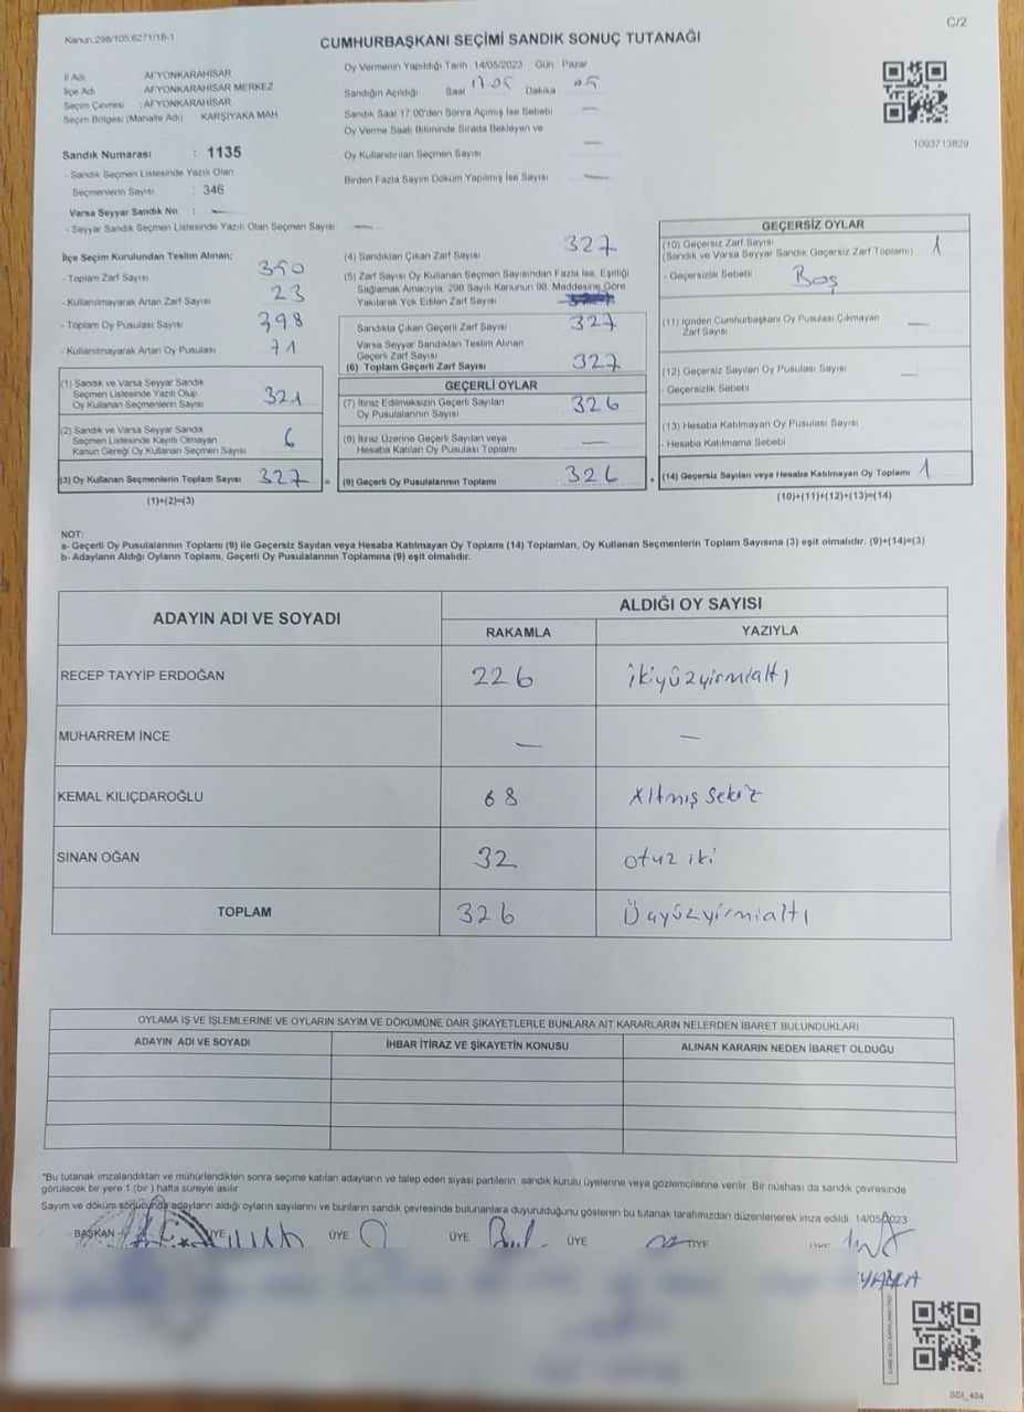 C/2
Kanun:298/105,6271/18-1
CUMHURBAŞKANI SEÇİMİ SANDIK SONUÇ TUTANAĞI
İl Adı : AFYONKARAHİSAR
İlçe Adı : AFYONKARAHİSAR MERKEZ
Seçim Çevresi : AFYONKARAHİSAR
Seçim Bölgesi (Mahalle Adı) KARŞIYAKA MAH
Sandık Numarası : 1135
- Sandık Seçmen Listesinde Yazılı Olan
Seçmenlerin Sayısı : 346
Varsa Seyyar Sandık No : —
- Seyyar Sandık Seçmen Listesinde Yazılı Olan Seçmen Sayısı —
Oy Vermenin Yapıldığı Tarih :14/05/2023 Gün : Pazar
Sandığın Açıldığı Saat 17.05 Dakika 05
Sandık Saat 17.00'den Sonra Açılmış İse Sebebi —
Oy Verme Saati Bitiminde Sırada Bekleyen ve
Oy Kullandırılan Seçmen Sayısı —
Birden Fazla Sayım Döküm Yapılmış İse Sayısı —
1093713829
İlçe Seçim Kurulundan Teslim Alınan;
- Toplam Zarf Sayısı 350
- Kullanılmayarak Artan Zarf Sayısı 23
- Toplam Oy Pusulası Sayısı 398
- Kullanılmayarak Artan Oy Pusulası 71
(1) Sandık ve Varsa Seyyar Sandık
Seçmen Listesinde Yazılı Olup
Oy Kullanan Seçmenlerin Sayısı 321
(2) Sandık ve Varsa Seyyar Sandık
Seçmen Listesinde Kayıtlı Olmayan
Kanun Gereği Oy Kullanan Seçmen Sayısı 6
(3) Oy Kullanan Seçmenlerin Toplam Sayısı 327 =
(1)+(2)=(3)
(4) Sandıktan Çıkan Zarf Sayısı 327
(5) Zarf Sayısı Oy Kullanan Seçmen Sayısından Fazla İse, Eşitliği
Sağlamak Amacıyla, 298 Sayılı Kanunun 98. Maddesine Göre
Yakılarak Yok Edilen Zarf Sayısı
Sandıkta Çıkan Geçerli Zarf Sayısı 327
Varsa Seyyar Sandıktan Teslim Alınan
Geçerli Zarf Sayısı
(6) Toplam Geçerli Zarf Sayısı 327
GEÇERLİ OYLAR
(7) İtiraz Edilmeksizin Geçerli Sayılan
Oy Pusulalarının Sayısı 326
(8) İtiraz Üzerine Geçerli Sayılan veya
Hesaba Katılan Oy Pusulası Toplamı —
(9) Geçerli Oy Pusulalarının Toplamı 326 +
GEÇERSİZ OYLAR
(10) Geçersiz Zarf Sayısı 1
(Sandık ve Varsa Seyyar Sandık Geçersiz Zarf Toplamı)
- Geçersizlik Sebebi Boş
(11) İçinden Cumhurbaşkanı Oy Pusulası Çıkmayan
Zarf Sayısı —
(12) Geçersiz Sayılan Oy Pusulası Sayısı —
- Geçersizlik Sebebi
(13) Hesaba Katılmayan Oy Pusulası Sayısı
- Hesaba Katılmama Sebebi
(14) Geçersiz Sayılan veya Hesaba Katılmayan Oy Toplamı 1
(10)+(11)+(12)+(13)=(14)
NOT:
a- Geçerli Oy Pusulalarının Toplamı (9) ile Geçersiz Sayılan veya Hesaba Katılmayan Oy Toplamı (14) Toplamları, Oy Kullanan Seçmenlerin Toplam Sayısına (3) eşit olmalıdır. (9)+(14)=(3)
b- Adayların Aldığı Oyların Toplamı, Geçerli Oy Pusulalarının Toplamına (9) eşit olmalıdır.
ADAYIN ADI VE SOYADI ALDIĞI OY SAYISI
RAKAMLA YAZIYLA
RECEP TAYYİP ERDOĞAN 226 ikiyüzyirmialtı
MUHARREM İNCE — —
KEMAL KILIÇDAROĞLU 68 Altmış Sekiz
SİNAN OĞAN 32 otuz iki
TOPLAM 326 Üçyüzyirmialtı
OYLAMA İŞ VE İŞLEMLERİNE VE OYLARIN SAYIM VE DÖKÜMÜNE DAİR ŞİKAYETLERLE BUNLARA AİT KARARLARIN NELERDEN İBARET BULUNDUKLARI
ADAYIN ADI VE SOYADI İHBAR İTİRAZ VE ŞİKAYETİN KONUSU ALINAN KARARIN NEDEN İBARET OLDUĞU
"Bu tutanak imzalandıktan ve mühürlendikten sonra seçime katılan adayların ve talep eden siyasi partilerin, sandık kurulu üyelerine veya gözlemcilerine verilir. Bir nüshası da sandık çevresinde
görülecek bir yere 1 (bir ) hafta süreyle asılır
Sayım ve döküm sonucunda adayların aldığı oyların sayılarını ve bunların sandık çevresinde bulunanlara duyurulduğunu gösteren bu tutanak tarafımızdan düzenlenerek imza edildi. 14/05/2023
BAŞKAN ÜYE ÜYE ÜYE ÜYE ÜYE